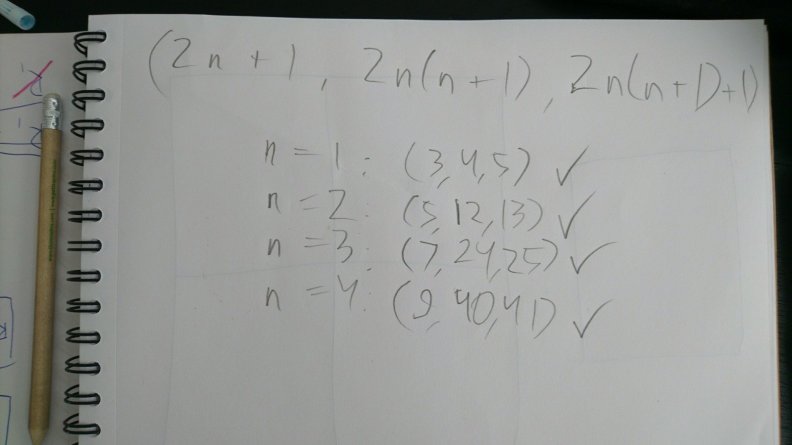 (2n+1, 2n(n+1), 2n(n+1)+1)
n=1: (3,4,5) ✓
n=2: (5,12,13) ✓
n=3: (7,24,25) ✓
n=4: (9,40,41) ✓